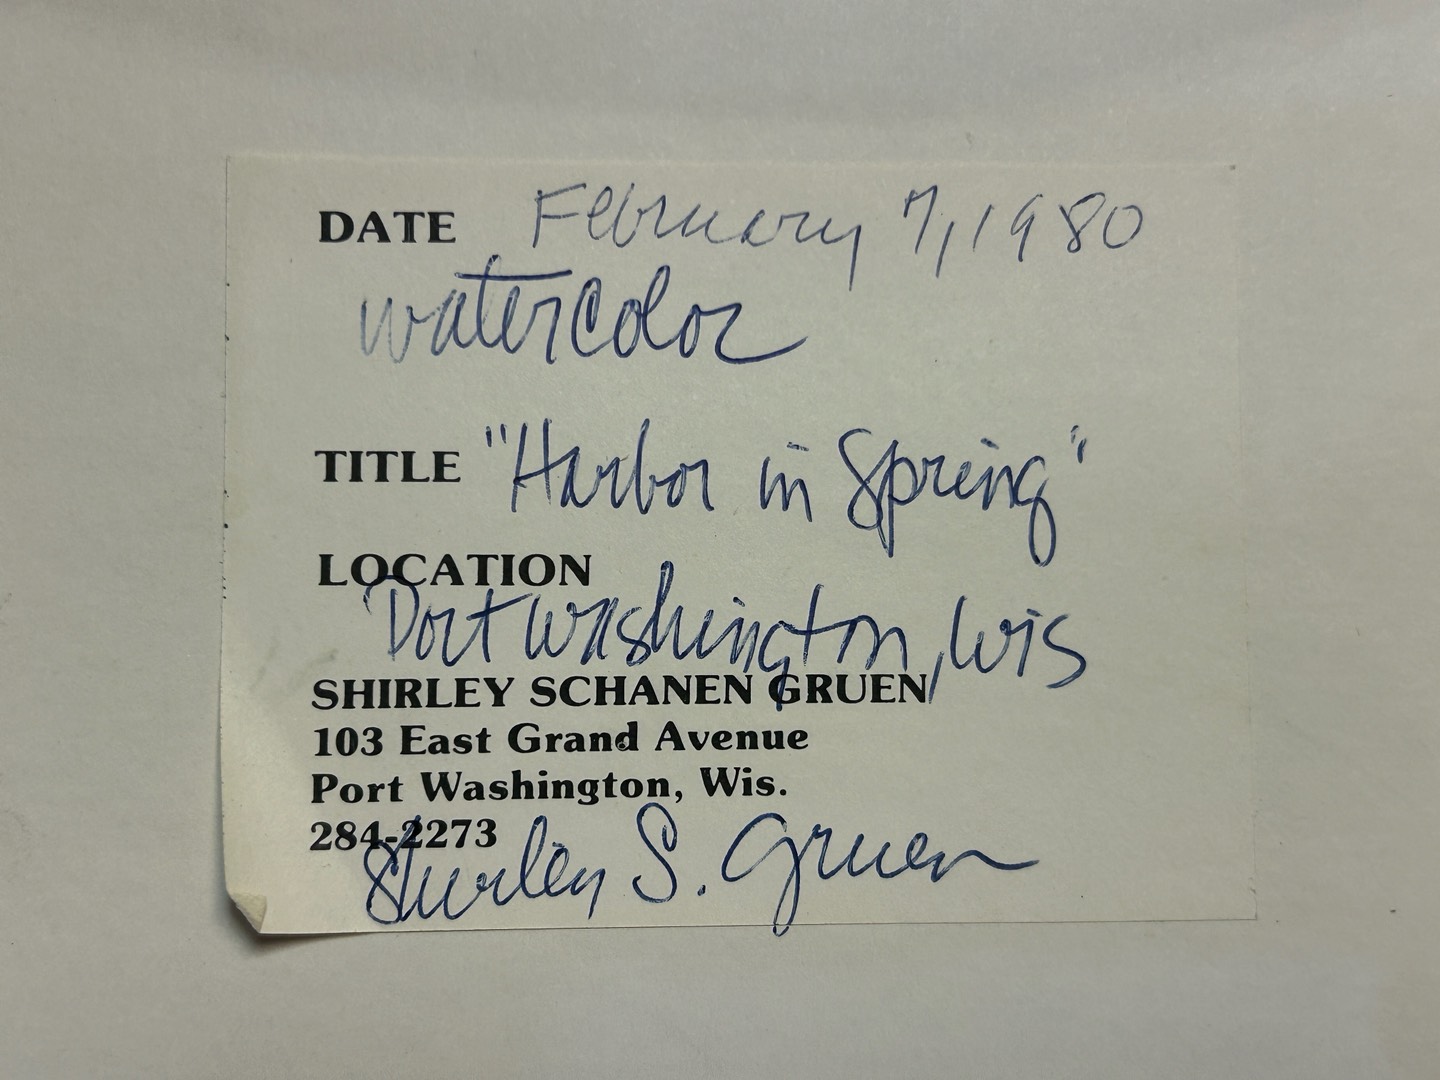 DATE February 7, 1980
watercolor
TITLE "Harbor in Spring"
LOCATION
Port Washington, Wis
SHIRLEY SCHANEN GRUEN
103 East Grand Avenue
Port Washington, Wis.
284-2273
Shirley S. Gruen